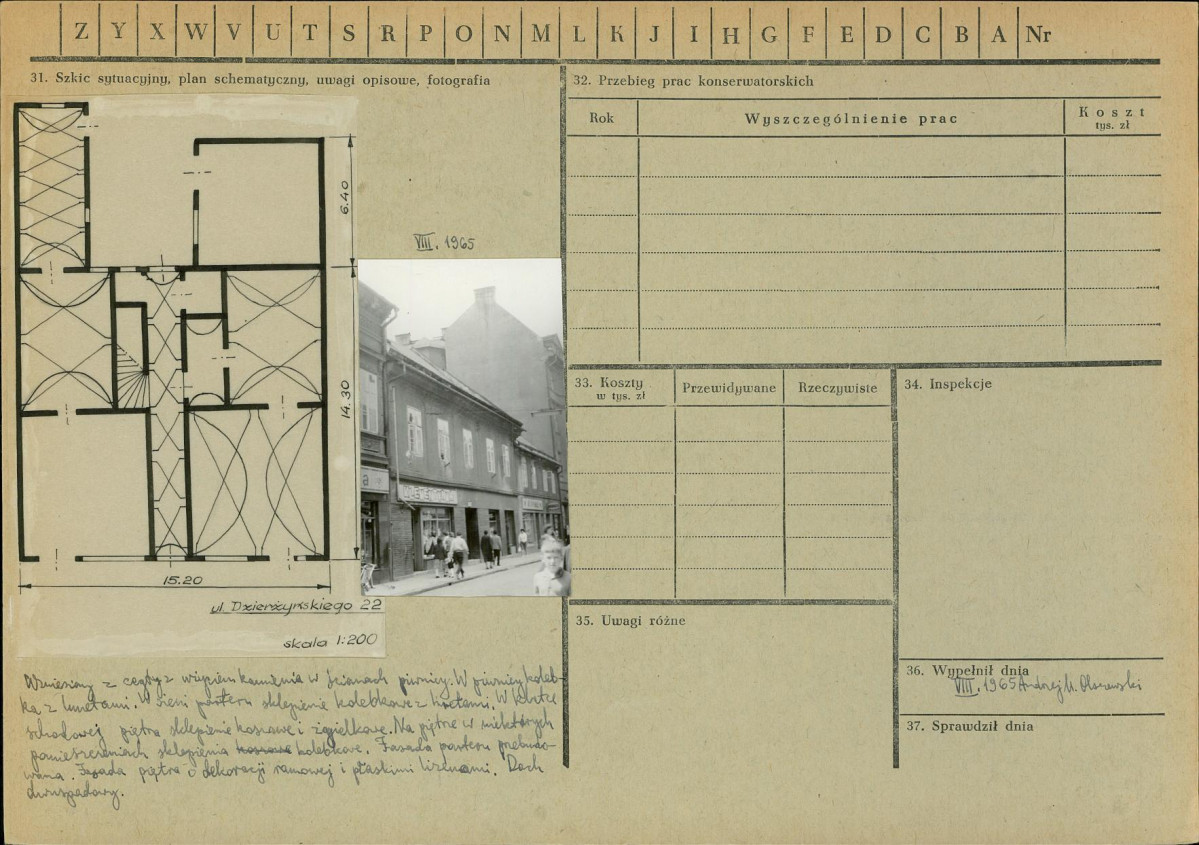 Z Y X W V U T S R P O N M L K J I H G F E D C B A Nr
31. Szkic sytuacyjny, plan schematyczny, uwagi opisowe, fotografia
6.40
14.30
15.20
ul. Dzierżyńskiego 22
skala 1:200
VIII. 1965
Wzniesiony z cegły z użyciem kamienia w ścianach piwnicy. W piwnicy koleb-
ka z lunetami. W sieni parteru sklepienie kolebkowe z lunetami. W klatce
schodowej piętra sklepienie kosowe i żagielkowe. Na piętrze w niektórych
pomieszczeniach sklepienia kolebkowe. Fasada parteru przebudo-
wana. Fasada piętra o dekoracji ramowej i płaskimi lizenami. Dach
dwuspadowy.
32. Przebieg prac konserwatorskich
Rok
Wyszczególnienie prac
Koszt
tys. zł
33. Koszty
w tys. zł
Przewidywane
Rzeczywiste
34. Inspekcje
35. Uwagi różne
36. Wypełnił dnia
VIII. 1965 Andrzej M. Olszewski
37. Sprawdził dnia